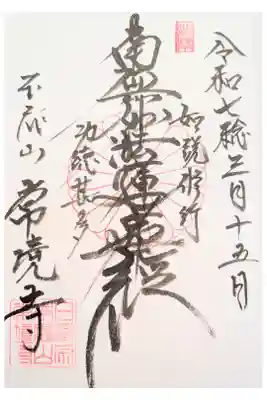 令和七稔三月十五日
如説修行
南無妙法蓮華経
功徳甚多
山
常境寺